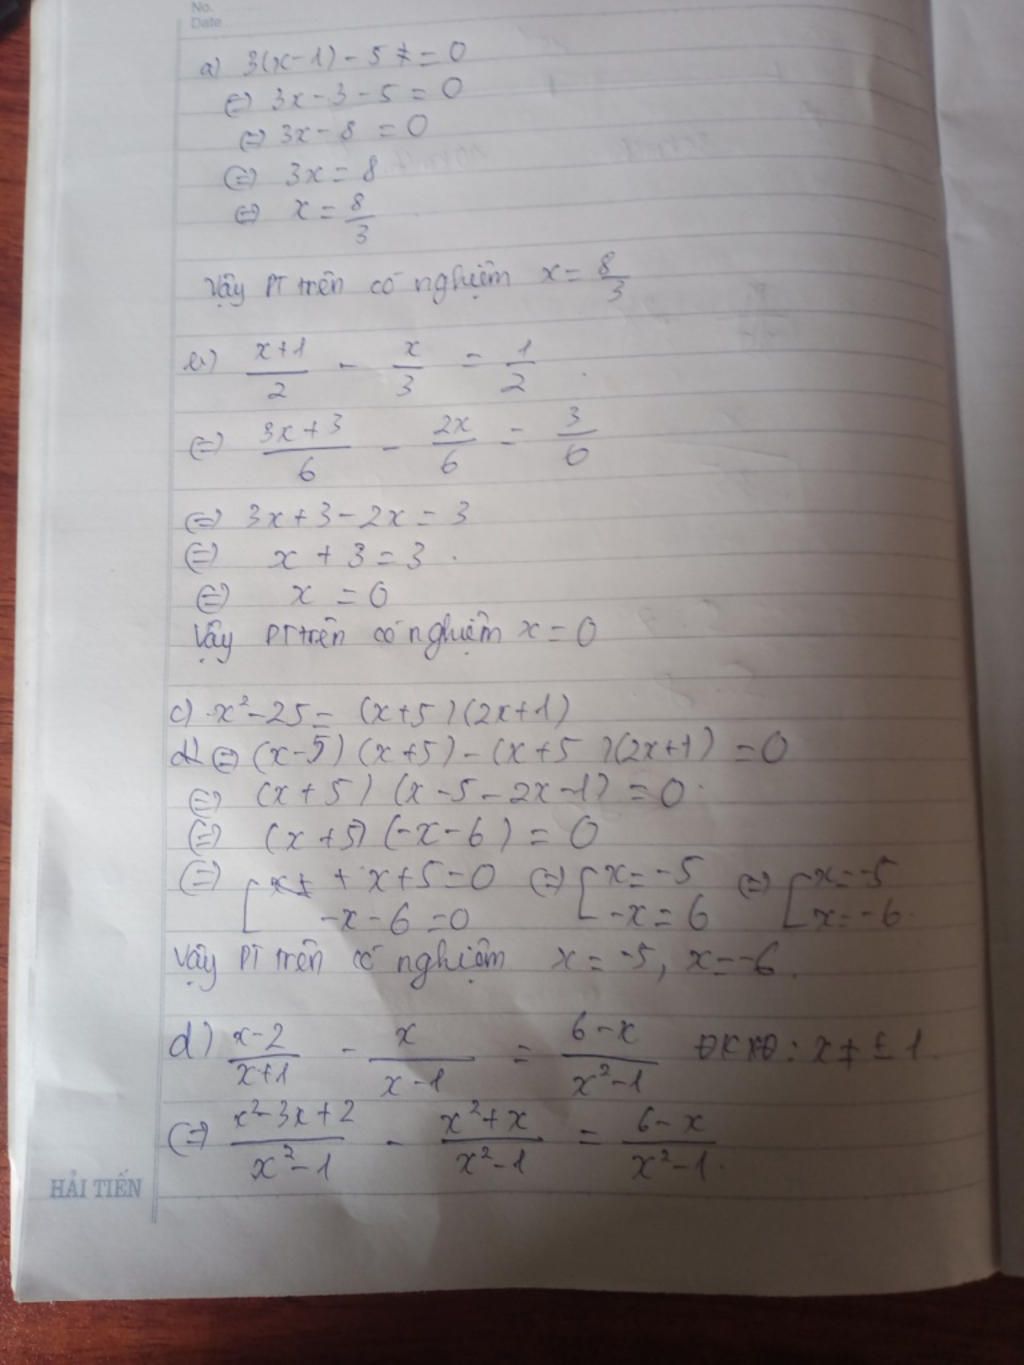 No.
Date
a) 3(x-1) - 5 = 0
⇔ 3x - 3 - 5 = 0
⇔ 3x - 8 = 0
⇔ 3x = 8
⇔ x = 8/3
Vậy PT trên có nghiệm x = 8/3
b) (x+1)/2 - x/3 = 1/2
⇔ (3x+3)/6 - 2x/6 = 3/6
⇔ 3x + 3 - 2x = 3
⇔ x + 3 = 3
⇔ x = 0
Vậy PT trên có nghiệm x = 0
c) x² - 25 = (x+5)(2x+1)
⇔ (x-5)(x+5) - (x+5)(2x+1) = 0
⇔ (x+5)(x-5-2x-1) = 0
⇔ (x+5)(-x-6) = 0
⇔ [ x+5=0 ⇔ [ x=-5 ⇔ [ x=-5
-x-6=0 -x=6 x=-6
Vậy PT trên có nghiệm x = -5, x = -6.
d) (x-2)/(x+1) - x/(x-1) = (6-x)/(x²-1) ĐKXĐ: x ≠ ±1.
⇔ (x²-3x+2)/(x²-1) - (x²+x)/(x²-1) = (6-x)/(x²-1)
HẢI TIẾN